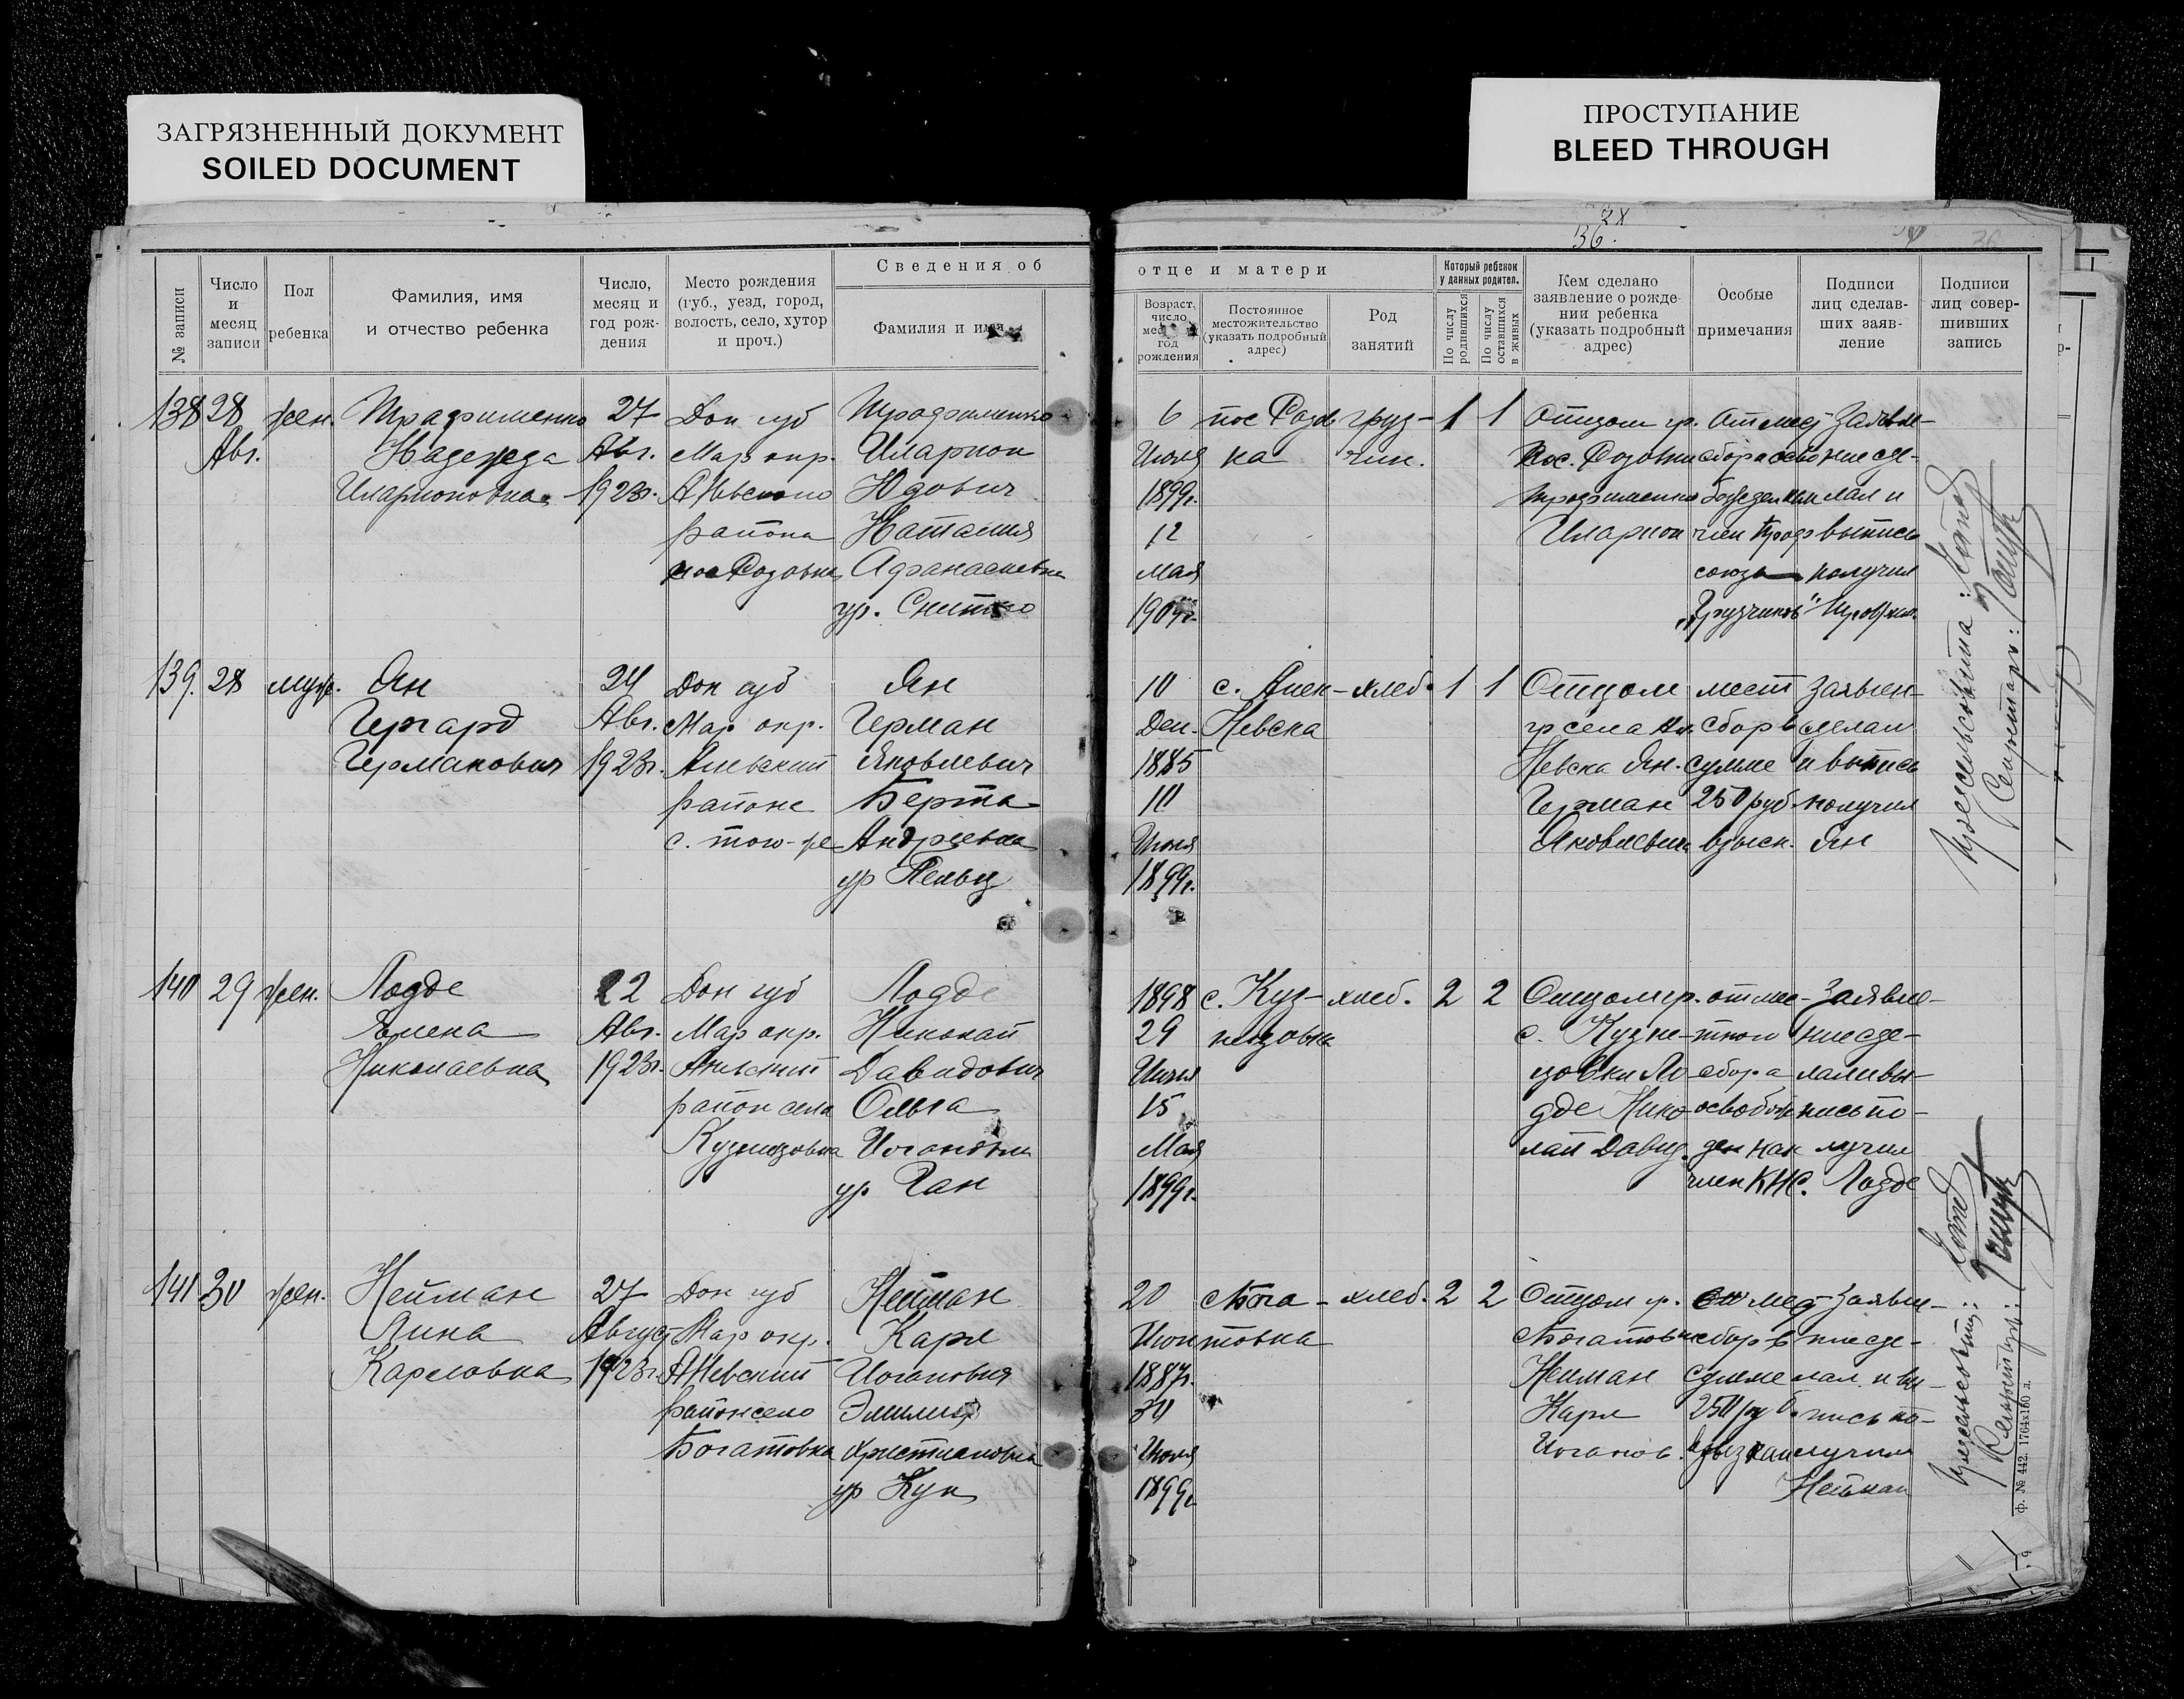 ЗАГРЯЗНЕННЫЙ ДОКУМЕНТ
SOILED DOCUMENT
ПРОСТУПАНИЕ
BLEED THROUGH
36.
Сведения об
отце и матери
№ записи
Число
и
месяц
записи
Пол
ребенка
Фамилия, имя
и отчество ребенка
Число,
месяц и
год рож-
дения
Место рождения
(губ., уезд, город,
волость, село, хутор
и проч.)
Фамилия и имя
Возраст,
число
год
рождения
Постоянное
местожительство
(указать подробный
адрес)
Род
занятий
Который ребенок
у данных родител.
По числу
родившихся
По числу
оставшихся
в живых
Кем сделано
заявление о рожде-
нии ребенка
(указать подробный
адрес)
Особые
примечания
Подписи
лиц сделав-
ших заяв-
ление
Подписи
лиц совер-
шивших
запись
138
28
Авг.
жен.
Трафименко
Надежда
Иларионовна
27
Авг.
1923г.
Дон губ
Мар окр.
АНевского
района
пос Розовка
Трофименко
Иларион
Юдович
Наталия
Афанасиевна
ур. Снитко
6
Июля
1899г.
12
мая
пос Розов
ка
груз-
чик.
1
1
Отцом гр.
пос. Розовки
Трофименко
Иларион
От мест
сбора осво
божден как
член Проф
союза
„Грузчиков"
Заявле-
ние сде-
лал и
выпись
получил
139.
28
муж.
Ян
Гергард
Германович
24
Авг.
1923г.
Дон губ
Мар окр.
района
с. того-же
Ян
Герман
Яковлевич
Берта
Андреевна
ур Пельц
10
Дек.
1885
10
Июля
1899г.
с. Алек-
Невска
хлеб.
1
1
Отцом
гр села Ал.
Невска Ян.
Герман
Яковлевич
мест
сбор в
сумме
250 руб
взыск.
Заявлен-
делал
и выпись
получил
Ян
140
29
жен.
Лодде
Елена
Николаевна
22
Авг.
1923г.
Дон губ
Мар окр.
район села
Кузнецовка
Лодде
Николай
Давидович
Ольга
ур Ган
1898
29
Июля
15
Мая
1899г.
с. Куз-
нецовка
хлеб.
2
2
Отцом гр.
с. Кузне-
цовки Ло-
дде Нико-
лай Давид.
от мес-
тного
сбора
освобож
ден как
член КНС.
Заявле-
ние сде-
лал и вы-
пись по-
лучил
Лодде
141
30
жен.
Нейман
Лина
Карловна
27
Август
1923г.
Дон губ
Мар окр.
АНевский
район село
Богатовка
Нейман
Карл
Иоганович
Эмилия
Христиановна
ур Кун
20
Июн
1887г.
30
Июля
1899г
Бога-
товка
хлеб.
2
2
Отцом гр.
Богатовки
Нейман
Карл
Иоганов.
от мест
сбор в
сумме
250 руб.
Заявле-
ние сде-
лал и вы-
пись по-
лучил
Нейман
ф. № 442. 1764x150 л.